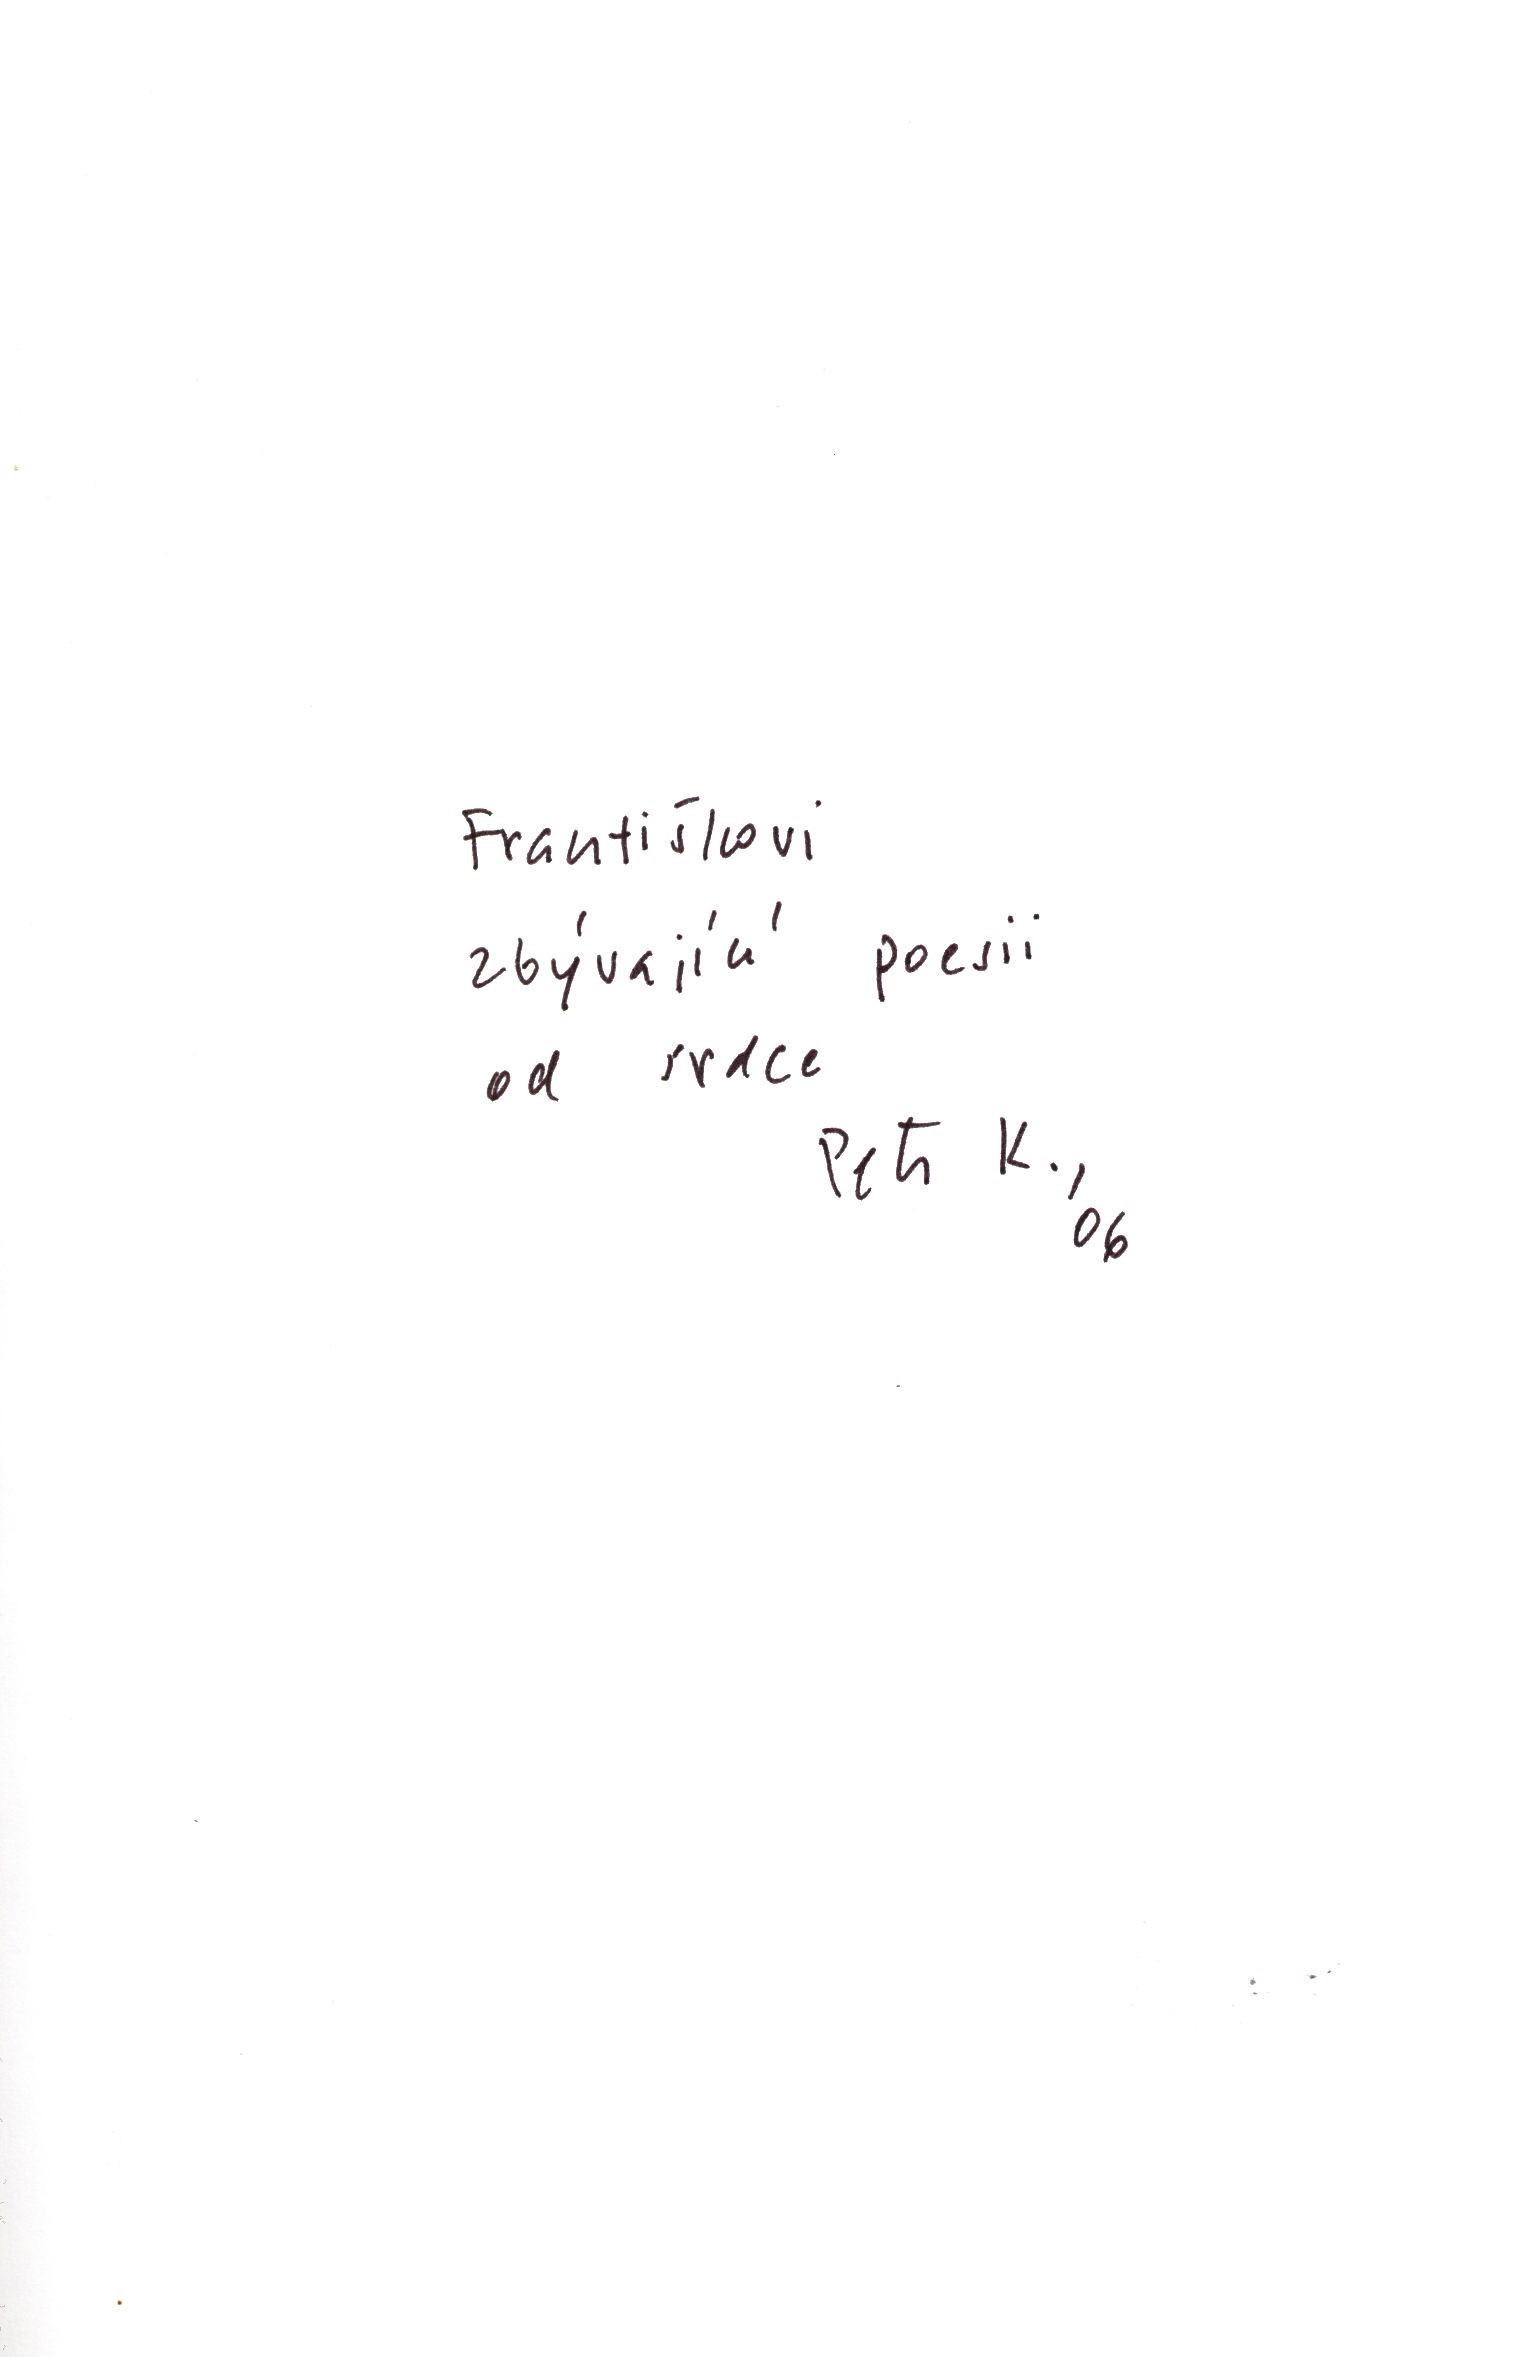 Františkovi
zbývající poesii
od srdce
Petr K.,
06